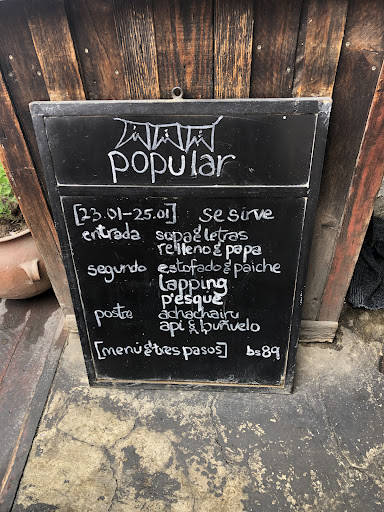 popular
[23.01-25.01] se sirve
entrada sopa & letras
relleno & papa
segundo estofado & paiche
tapping
p'esque
postre achachairu
api & buñuelo
[menú & tres pasos] bs89